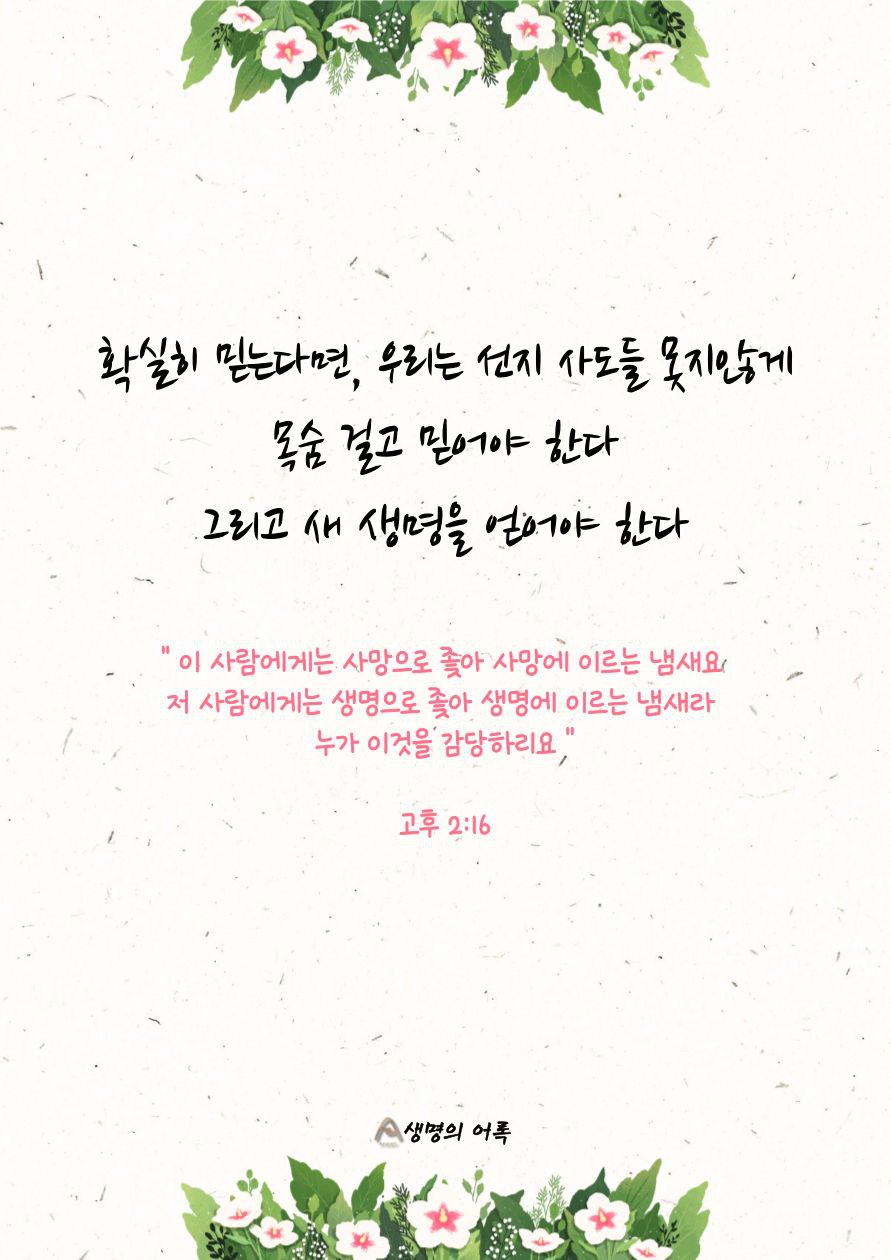 확실히 믿는다면, 우리는 선지 사도들 못지않게
목숨 걸고 믿어야 한다
그리고 새 생명을 얻어야 한다
" 이 사람에게는 사망으로 좇아 사망에 이르는 냄새요
저 사람에게는 생명으로 좇아 생명에 이르는 냄새라
누가 이것을 감당하리요 "
고후 2:16
생명의 어록